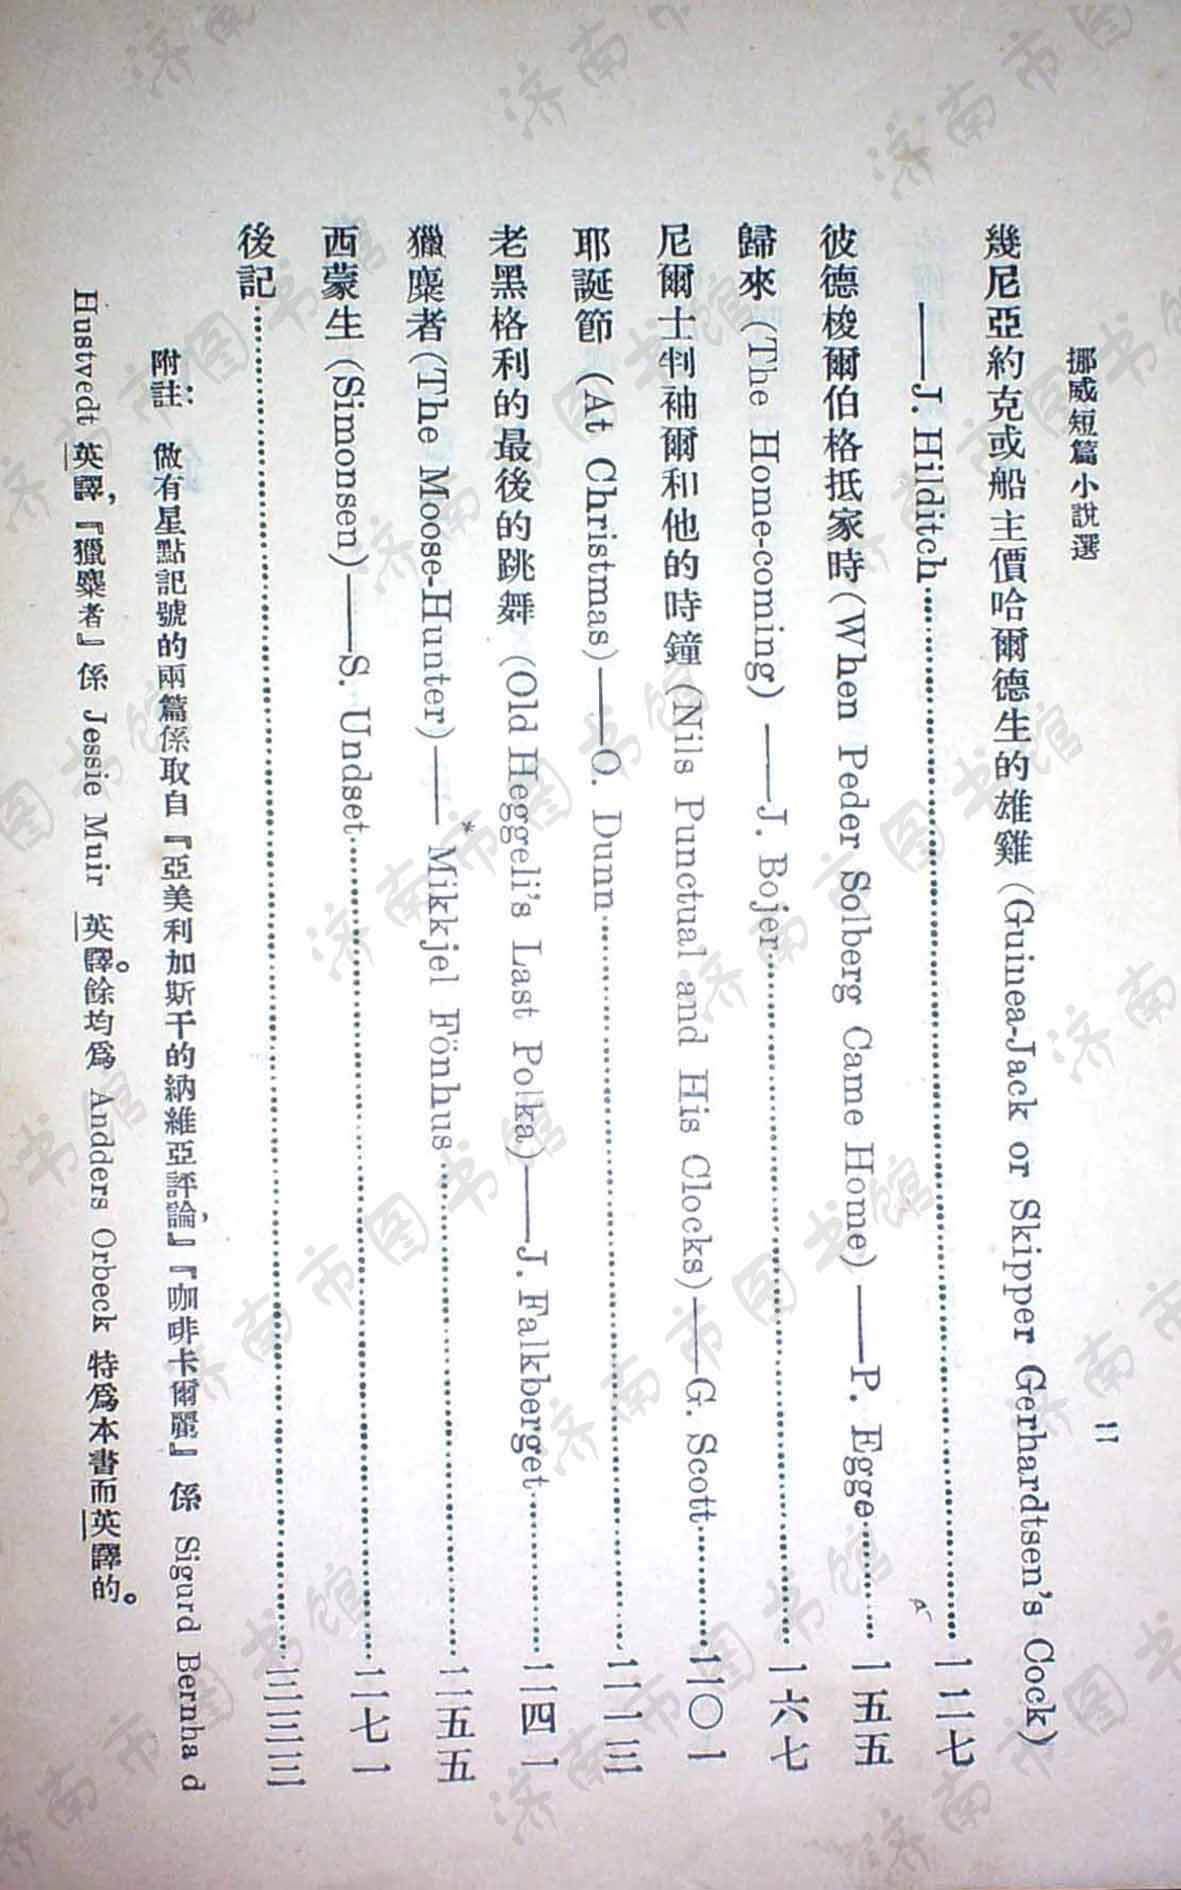 挪威短篇小說選
二
幾尼亞約克或船主價哈爾德生的雄雞 (Guinea-Jack or Skipper Gerhardtsen's Cock)
——J. Hilditch……一二七
彼德梭爾伯格抵家時 (When Peder Solberg Came Home) ——P. Egge……一五五
歸來 (The Home-coming) ——J. Bojer……一六七
尼爾士判袖爾和他的時鐘 (Nils Punctual and His Clocks)——G. Scott……二〇一
耶誕節 (At Christmas)——O. Dunn……二一三
老黑格利的最後的跳舞 (Old Heggeli's Last Polka)——J. Falkberget……二四一
獵麋者 (The Moose-Hunter)——* Mikkjel Fönhus……二五五
西蒙生 (Simonsen)——S. Undset……二七一
後記……三三三
附註: 做有星點記號的兩篇係取自『亞美利加斯干的納維亞評論』,『咖啡卡爾麗』係 Sigurd Bernha d
Hustvedt 英譯,『獵麋者』係 Jessie Muir 英譯。餘均爲 Andders Orbeck 特爲本書而英譯的。
济南市图书馆